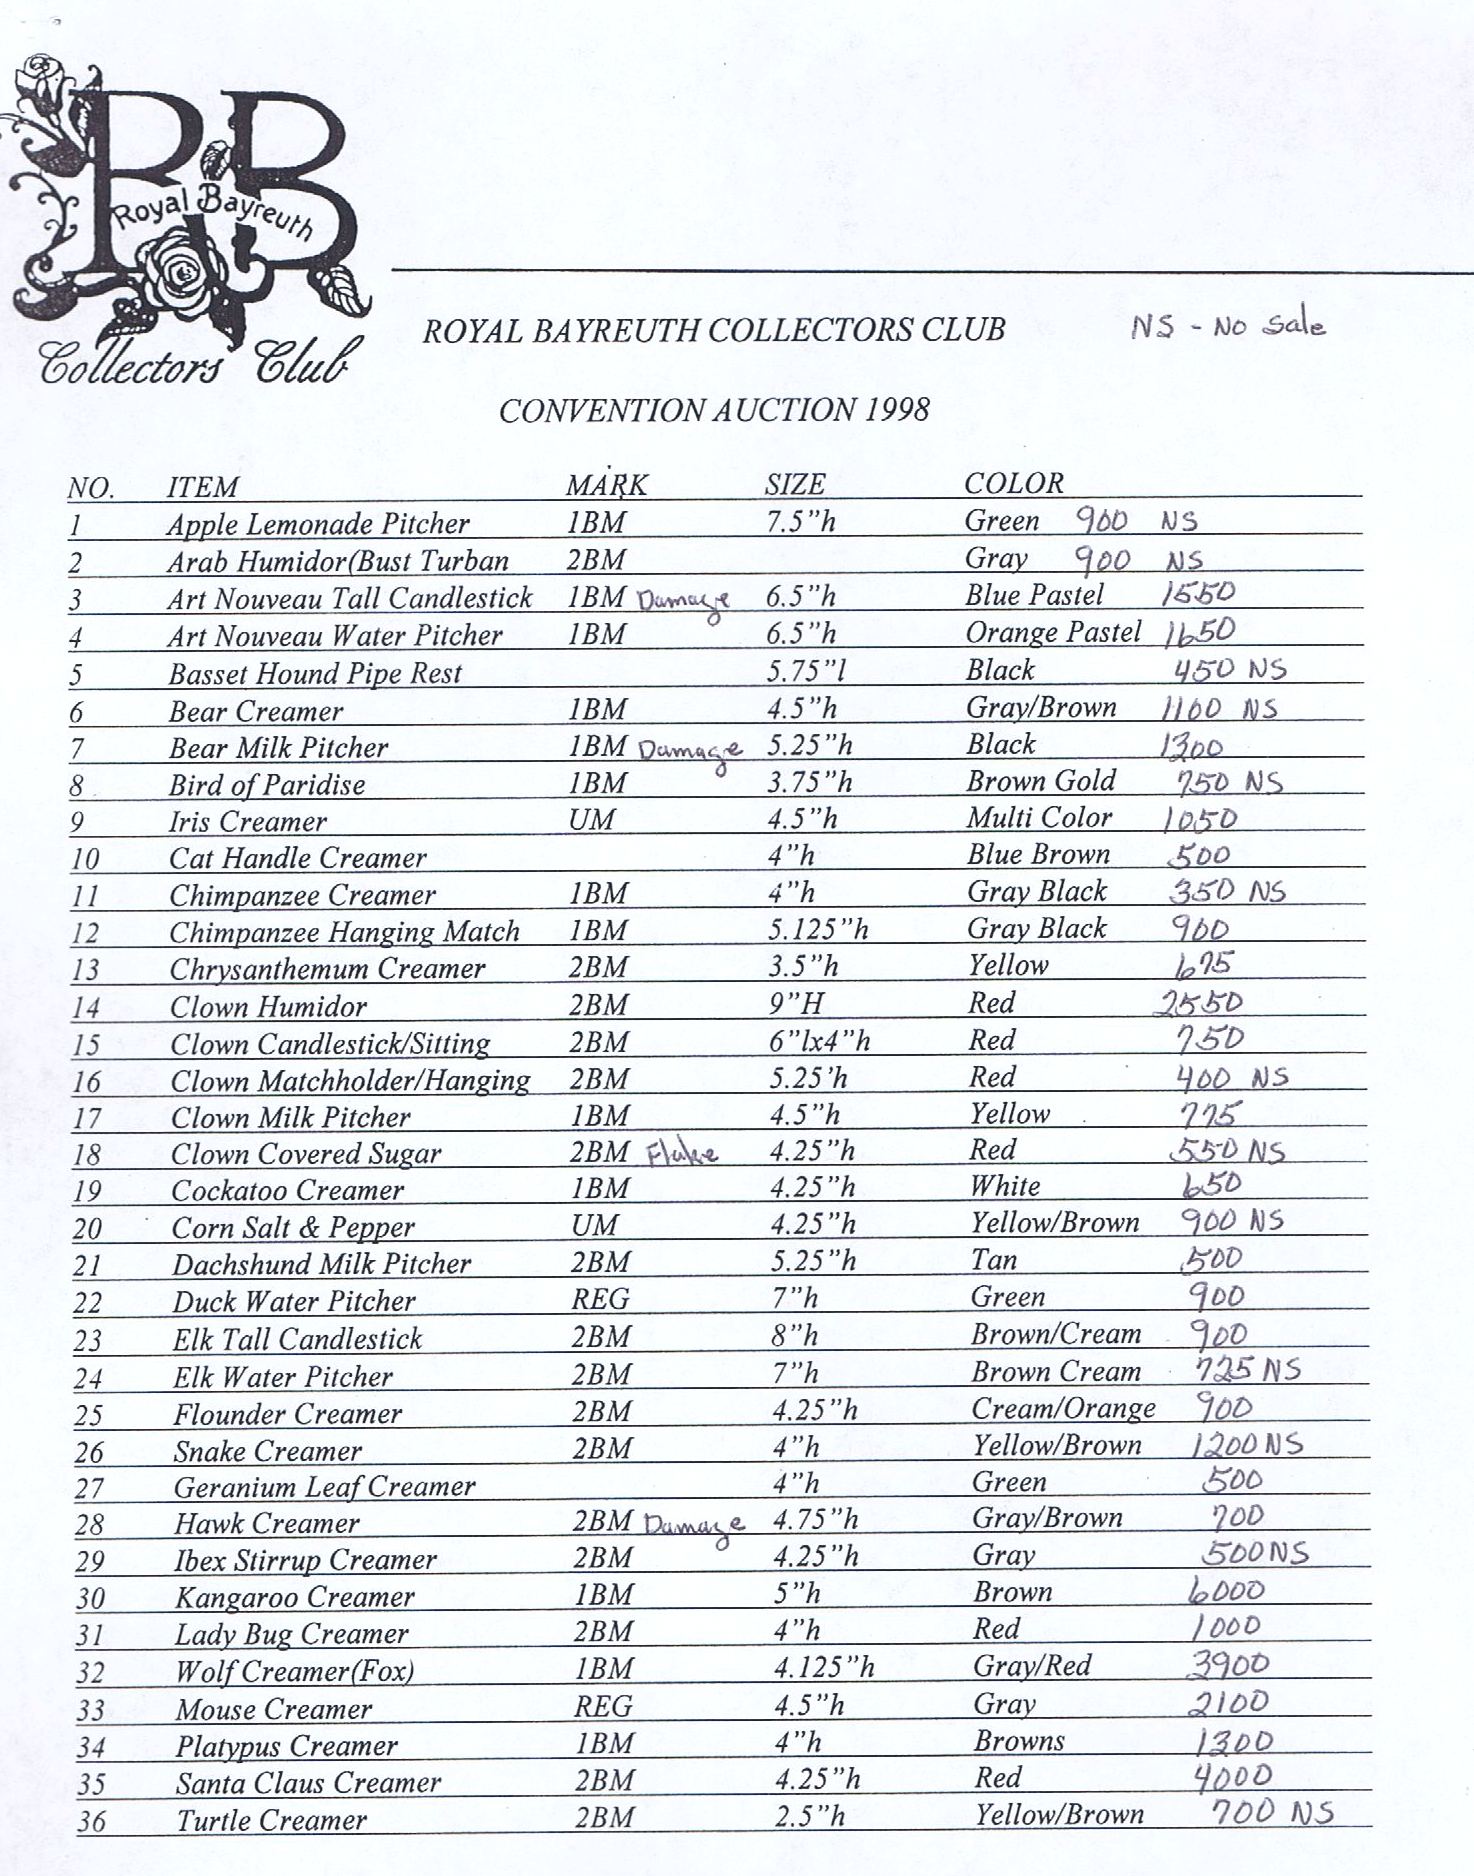 RB
Royal Bayreuth
Collectors Club
ROYAL BAYREUTH COLLECTORS CLUB NS - No Sale
CONVENTION AUCTION 1998
NO. ITEM MARK SIZE COLOR
1 Apple Lemonade Pitcher 1BM 7.5"h Green 900 NS
2 Arab Humidor(Bust Turban 2BM Gray 900 NS
3 Art Nouveau Tall Candlestick 1BM Damage 6.5"h Blue Pastel 1550
4 Art Nouveau Water Pitcher 1BM 6.5"h Orange Pastel 1650
5 Basset Hound Pipe Rest 5.75"l Black 450 NS
6 Bear Creamer 1BM 4.5"h Gray/Brown 1100 NS
7 Bear Milk Pitcher 1BM Damage 5.25"h Black 1300
8 Bird of Paridise 1BM 3.75"h Brown Gold 750 NS
9 Iris Creamer UM 4.5"h Multi Color 1050
10 Cat Handle Creamer 4"h Blue Brown 500
11 Chimpanzee Creamer 1BM 4"h Gray Black 350 NS
12 Chimpanzee Hanging Match 1BM 5.125"h Gray Black 900
13 Chrysanthemum Creamer 2BM 3.5"h Yellow 675
14 Clown Humidor 2BM 9"H Red 2550
15 Clown Candlestick/Sitting 2BM 6"lx4"h Red 750
16 Clown Matchholder/Hanging 2BM 5.25'h Red 400 NS
17 Clown Milk Pitcher 1BM 4.5"h Yellow 775
18 Clown Covered Sugar 2BM Flake 4.25"h Red 550 NS
19 Cockatoo Creamer 1BM 4.25"h White 650
20 Corn Salt & Pepper UM 4.25"h Yellow/Brown 900 NS
21 Dachshund Milk Pitcher 2BM 5.25"h Tan 500
22 Duck Water Pitcher REG 7"h Green 900
23 Elk Tall Candlestick 2BM 8"h Brown/Cream 900
24 Elk Water Pitcher 2BM 7"h Brown Cream 725 NS
25 Flounder Creamer 2BM 4.25"h Cream/Orange 900
26 Snake Creamer 2BM 4"h Yellow/Brown 1200 NS
27 Geranium Leaf Creamer 4"h Green 500
28 Hawk Creamer 2BM Damage 4.75"h Gray/Brown 700
29 Ibex Stirrup Creamer 2BM 4.25"h Gray 500 NS
30 Kangaroo Creamer 1BM 5"h Brown 6000
31 Lady Bug Creamer 2BM 4"h Red 1000
32 Wolf Creamer(Fox) 1BM 4.125"h Gray/Red 3900
33 Mouse Creamer REG 4.5"h Gray 2100
34 Platypus Creamer 1BM 4"h Browns 1300
35 Santa Claus Creamer 2BM 4.25"h Red 4000
36 Turtle Creamer 2BM 2.5"h Yellow/Brown 700 NS